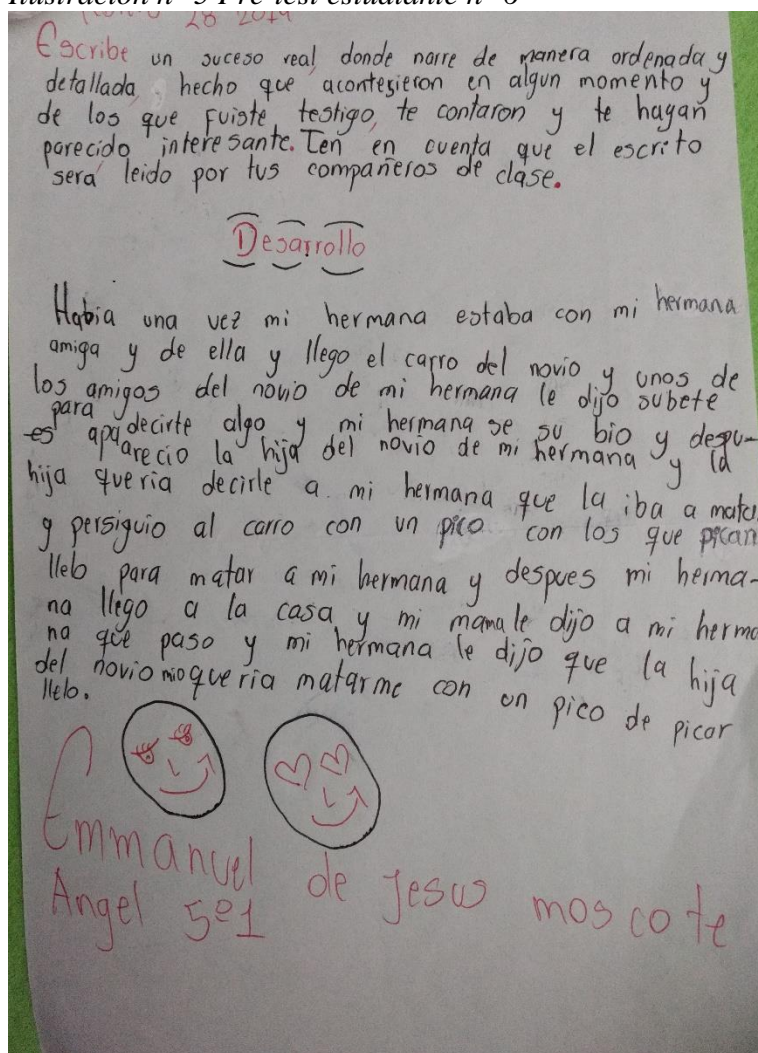 Ilustración n° 5 Pre-test estudiante n° 6
28 2019
Escribe un suceso real donde narre de manera ordenada y
detallada, hecho que acontesieron en algun momento y
de los que fuiste testigo, te contaron y te hagan
parecido interesante. Ten en cuenta que el escrito
sera leido por tus compañeros de clase.
Desarrollo
Habia una vez mi hermana estaba con mi hermana
amiga y de ella y llego el carro del novio y unos de
los amigos del novio de mi hermana le dijo subete
para decirte algo y mi hermana se su bio y despu-
es apaarecio la hija del novio de mi hermana y la
hija queria decirle a mi hermana que la iba a matar
y persiguio al carro con un pico con los que pican
lleb para matar a mi hermana y despues mi herma-
na llego a la casa y mi mama le dijo a mi herma
na que paso y mi hermana le dijo que la hija
del novio mio queria matarme con un pico de picar
lleb.
Emmanuel de Jesus moscote
Angel 5º1